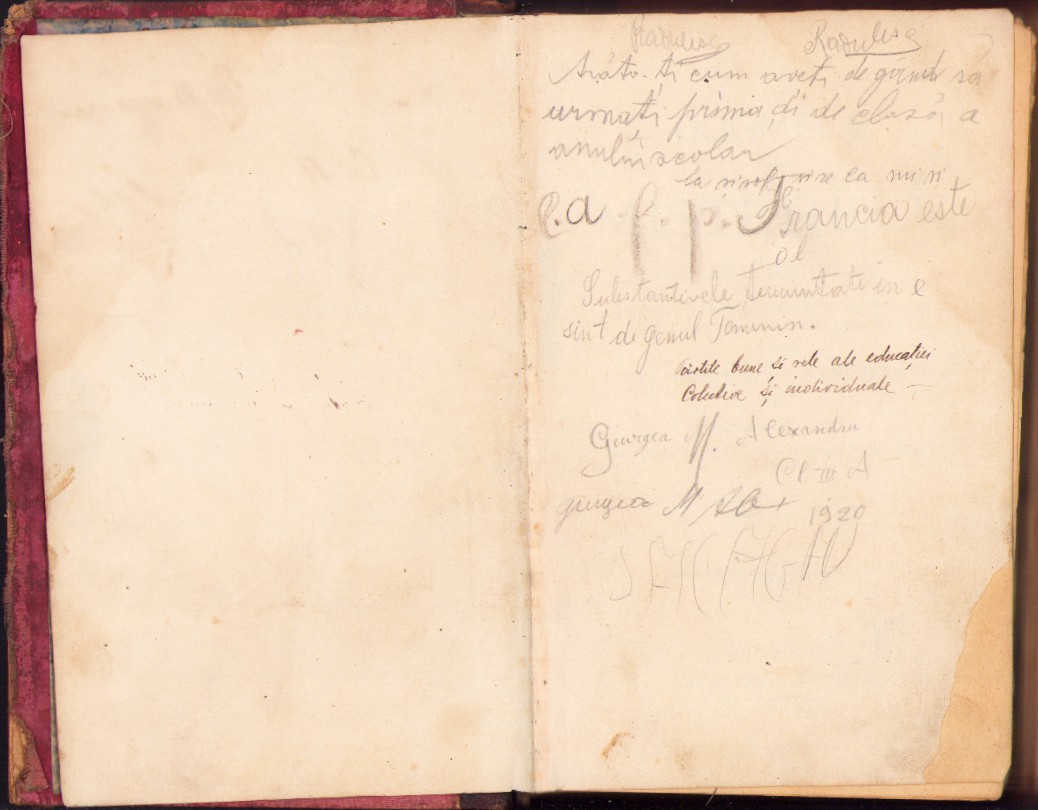 Radulesc Radulesc
Arăta-ți cum aveți de gînd să
urmați prima zi de clasă a
anului școlar
la
C.a f. p. Francia este
al
Substantivele terminate in e
sint de genul Feminin.
Părțile bune și rele ale educației
Colective și individuale —
Giurgea M. Alexandru
Cl III A —
giurgea M Alex 1920